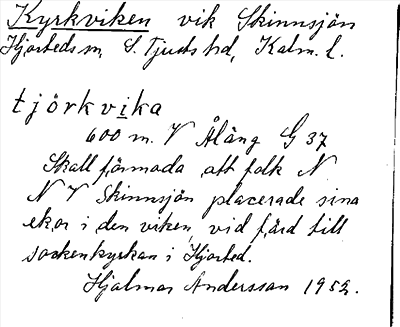 Kyrkviken vik Skinnsjön
Hjorteds sn, S. Tjusts hd, Kalm. l.
tjörkvika
600 m. V Åläng G 37
Skall förmoda att folk N
N V Skinnsjön placerade sina
ekor i den viken, vid färd till
sockenkyrkan i Hjorted.
Hjalmar Andersson 1952.